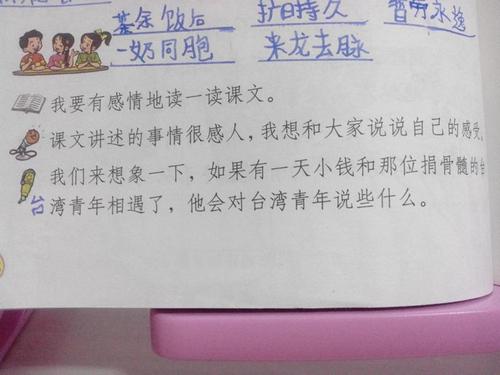 茶余饭后 扩日持久 暂劳永逸
一奶同胞 来龙去脉
我要有感情地读一读课文。
课文讲述的事情很感人,我想和大家说说自己的感受。
我们来想象一下,如果有一天小钱和那位捐骨髓的台
台湾青年相遇了,他会对台湾青年说些什么。